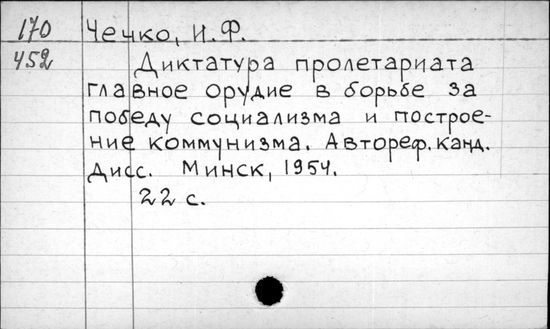 170 Чечко, И.Ф.
452 Диктатура пролетариата
главное орудие в борьбе за
победу социализма и построе-
ние коммунизма. Автореф. канд.
дисс. Минск, 1954.
22 с.